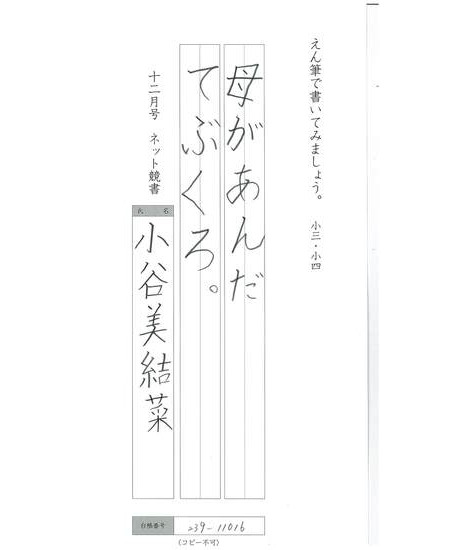 えん筆で書いてみましょう。 小三・小四
母があんだ
てぶくろ。
十二月号 ネット競書
氏 名
小谷美結菜
台帳番号
239-11016
(コピー不可)